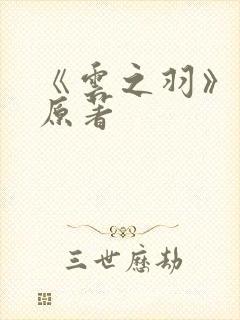 《雲之羽》
原著
三世歷劫